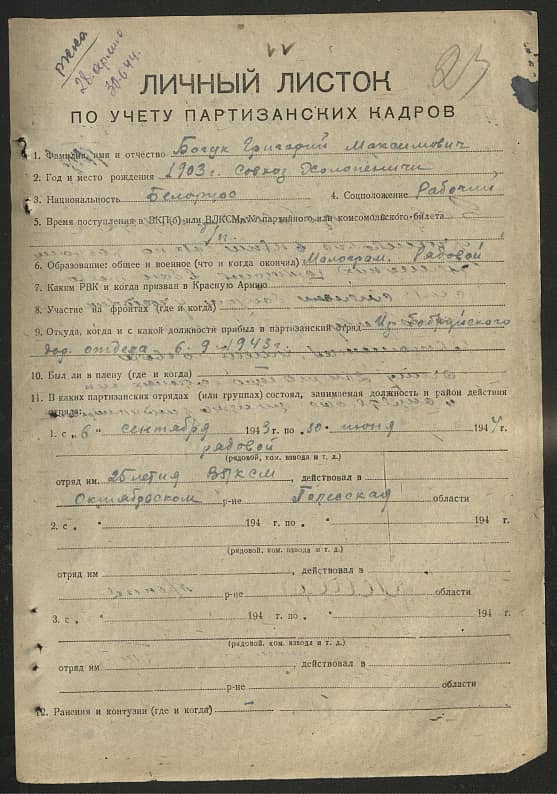 РККА
28 армия
30.6.44.
23
ЛИЧНЫЙ ЛИСТОК
ПО УЧЕТУ ПАРТИЗАНСКИХ КАДРОВ
1. Фамилия, имя и отчество Григорий Максимович
2. Год и место рождения 1903 г. совхоз Холопеничи
3. Национальность Белорус 4. Соцположение Рабочий
5. Время поступления в ВКП(б) или ВЛКСМ, № партийного или комсомольского билета
6. Образование: общее и военное (что и когда окончил) Малограм. Рядовой
7. Каким РВК и когда призван в Красную Армию
8. Участие на фронтах (где и когда)
9. Откуда, когда и с какой должности прибыл в партизанский отряд Из Бобруйского
отдела 6-9-1943 г.
10. Был ли в плену (где и когда)
11. В каких партизанских отрядах (или группах) состоял, занимаемая должность и район действия
отряда:
1. с „6" сентября 1943 г. по 30 июня 1944 г.
рядовой
(рядовой, ком. взвода и т. д.)
отряд им. 25 летия ВЛКСМ, действовал в
Октябрьском р-не Полесская области
2. с „ " 194 г. по „ " 194 г.
(рядовой, ком. взвода и т. д.)
отряд им , действовал в
р-не области
3. с „ " 194 г. по „ " 194 г.
(рядовой, ком. взвода и т. д.)
отряд им , действовал в
р-не области
12. Ранения и контузии (где и когда) —